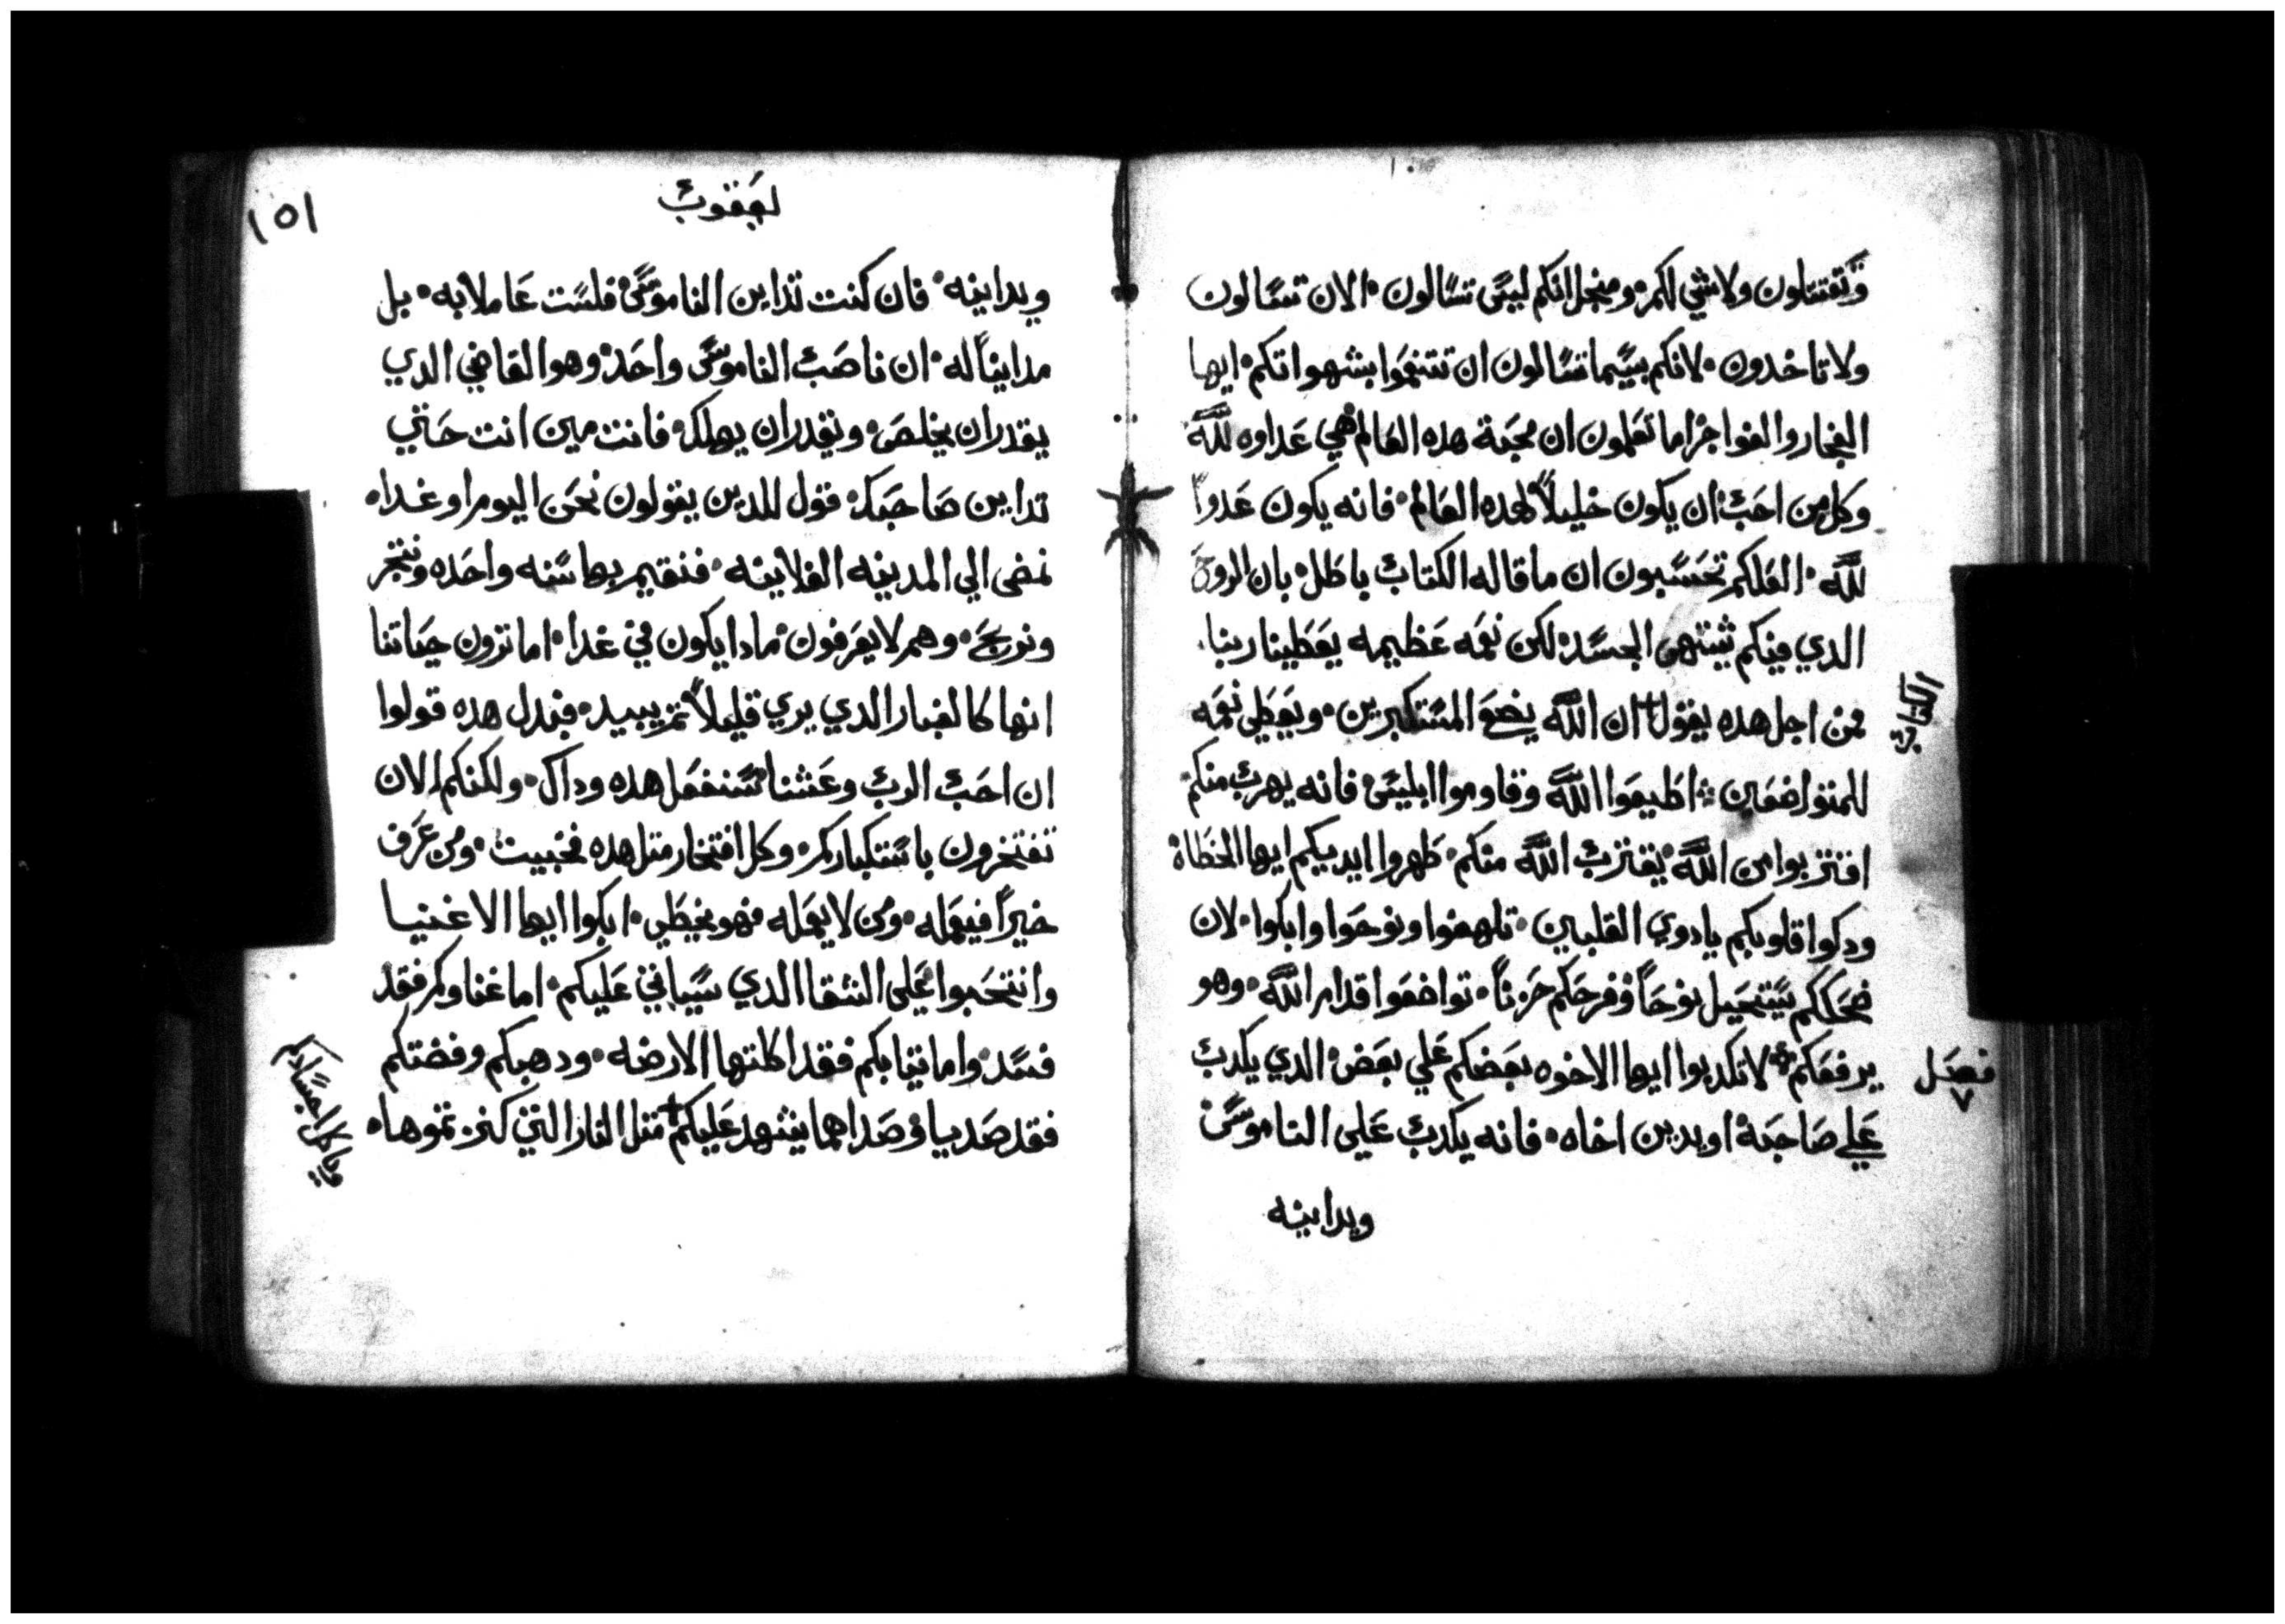 وتقتتلون ولاشي لكم۰ ومنجل انكم ليس تسالون۰ الان تسالون
ولا تاخدون۰ لانكم بيسما تسالون ان تتنعموا بشهواتكم۰ ايها
الفجار والفواجر اما تعلمون ان محبة هده العالم هي عداوه لله
وكل من احب ان يكون خليلاً لهده العالم۰ فانه يكون عدواً
لله۰ العلكم تحسبون ان ما قاله الكتاب باطل۰ بان الروح
الدي فيكم تشتهي الجسد۰ لكن نعمه عظيمه يعطينا ربنا۰
فمن اجل هده يقول ان الله يضع المستكبرين۰ ويعطي نعمه
الكتاب
للمتواضعين ۰ اطيعوا الله وقاوموا ابليس۰ فانه يهرب منكم
اقتربوا من الله يقترب الله منكم۰ طهروا ايديكم ايها الخطاة
ودكوا قلوبكم يادوي القلبين۰ تلهفوا ونوحوا وابكوا۰ لان
ضحككم يستحيل نوحاً وفرحكم حزناً۰ تواضعوا قدام الله۰ وهو
يرفعكم۰ لا تكدبوا ايها الاخوه بعضكم علي بعض۰ الدي يكدب
فصل ٧
علي صاحبة او يدين اخاه۰ فانه يكدب علي الناموس
ويداينه
يعقوب
١٥١
ويداينه۰ فان كنت تداين الناموس فلست عاملا به۰ بل
مدايناً له۰ ان ناصب الناموس واحد۰ وهو القاضي الدي
يقدر ان يخلص۰ ويقدر ان يهلك۰ فانت مين انت حتي
تداين صاحبك۰ قول للدين يقولون نحن اليوم او غدا۰
نمضي الي المدينه الفلانيه۰ فنقيم بها سنه واحده ونتجر
ونربح۰ وهم لا يعرفون مادا يكون في غدا۰ اما ترون حياتنا
انها كالغبار الدي يري قليلاً تم يبيد۰ فبدل هده قولوا
ان احب الرب وعشنا سنفعل هده وداك۰ ولكنكم الان
تفتخرون باستكباركم۰ وكل افتخار متل هده فخبيت۰ ومن عرف
خيراً فيعمله۰ ومن لا يعمله فهو يخطي۰ ابكوا ايها الاغنيا
وانتحبوا علي الشقا الدي سياتي عليكم۰ اما غناوكم فقد
فسد۰ واما تيابكم فقد اكلتها الارضه۰ ودهبكم وفضتكم
فقد صديا۰ وصداهما يشهد عليكم متل النار التي كنزتموها۰
وياكل اجسادكم